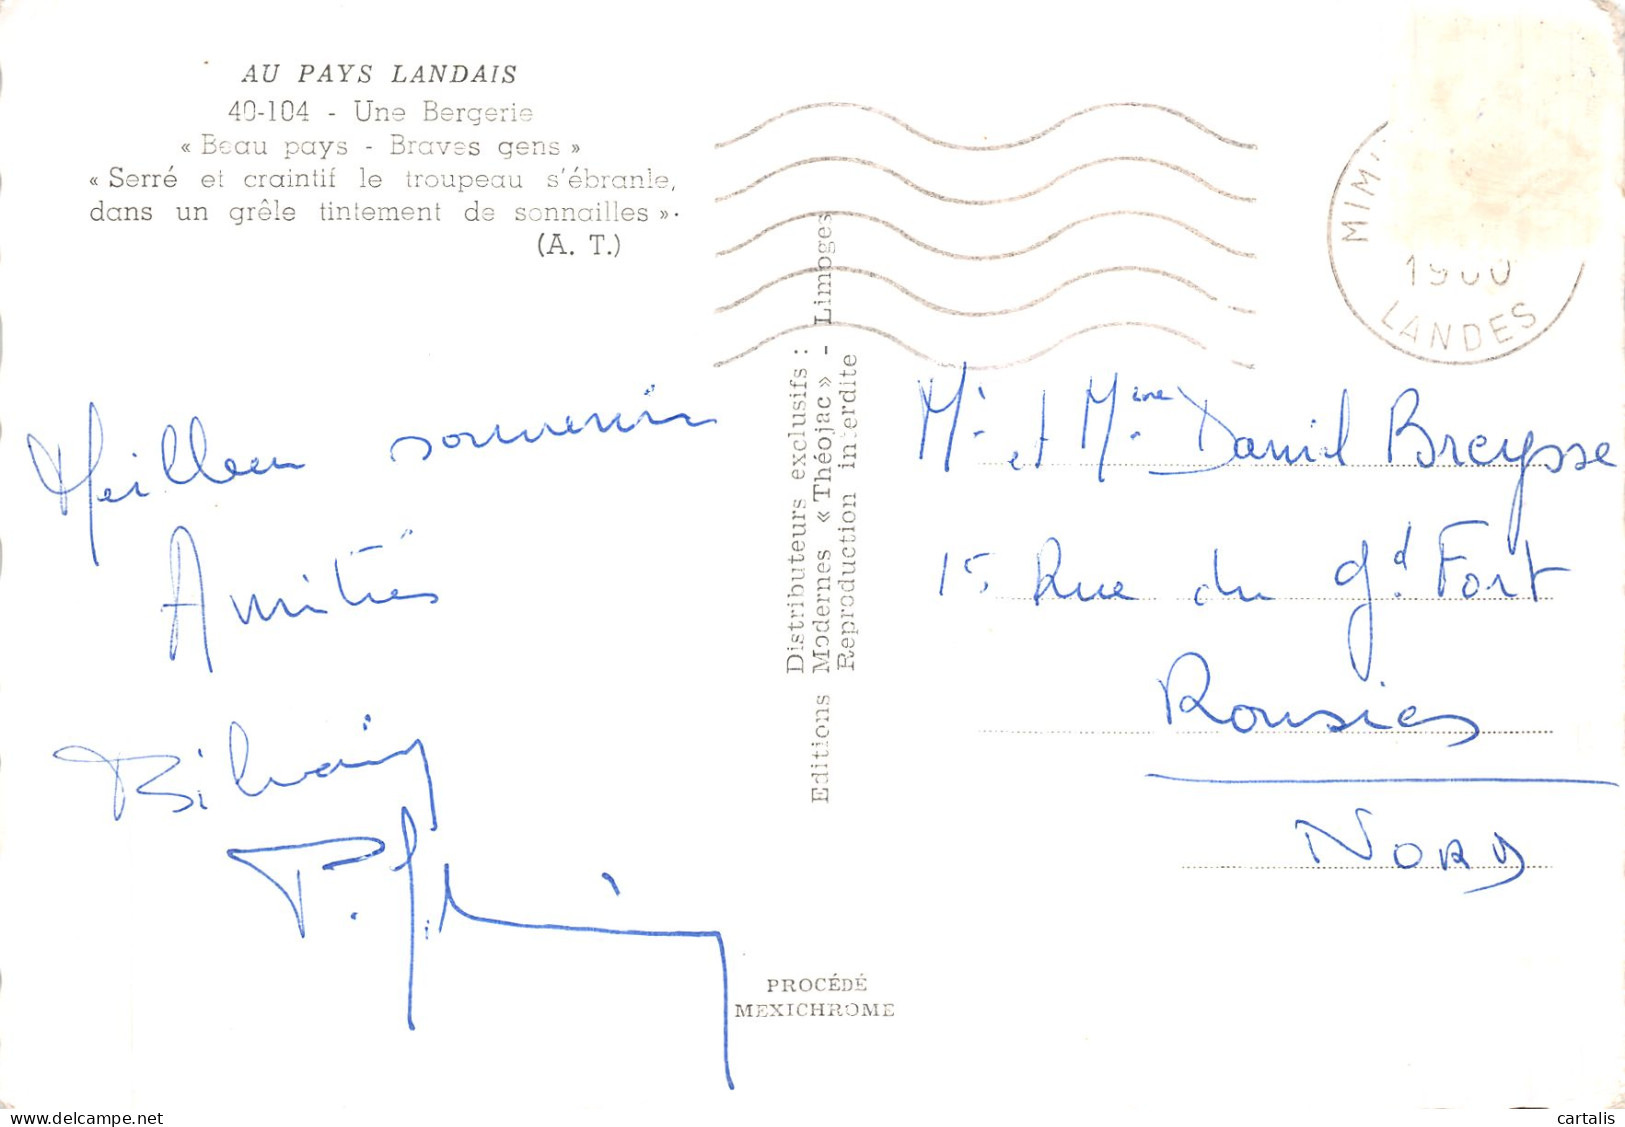 AU PAYS LANDAIS
40-104 - Une Bergerie
« Beau pays - Braves gens »
« Serré et craintif le troupeau s'ébranle,
dans un grêle tintement de sonnailles ».
(A. T.)
Meilleur souvenir
Amitiés
P.
Distributeurs exclusifs :
Editions Modernes « Théojac » - Limoges
Reproduction interdite
PROCÉDÉ
MEXICHROME
LANDES
Mr et Mme Daniel Breysse
15 Rue du gd. Fort
Rousies
NORD
delcampe.net
cartalis